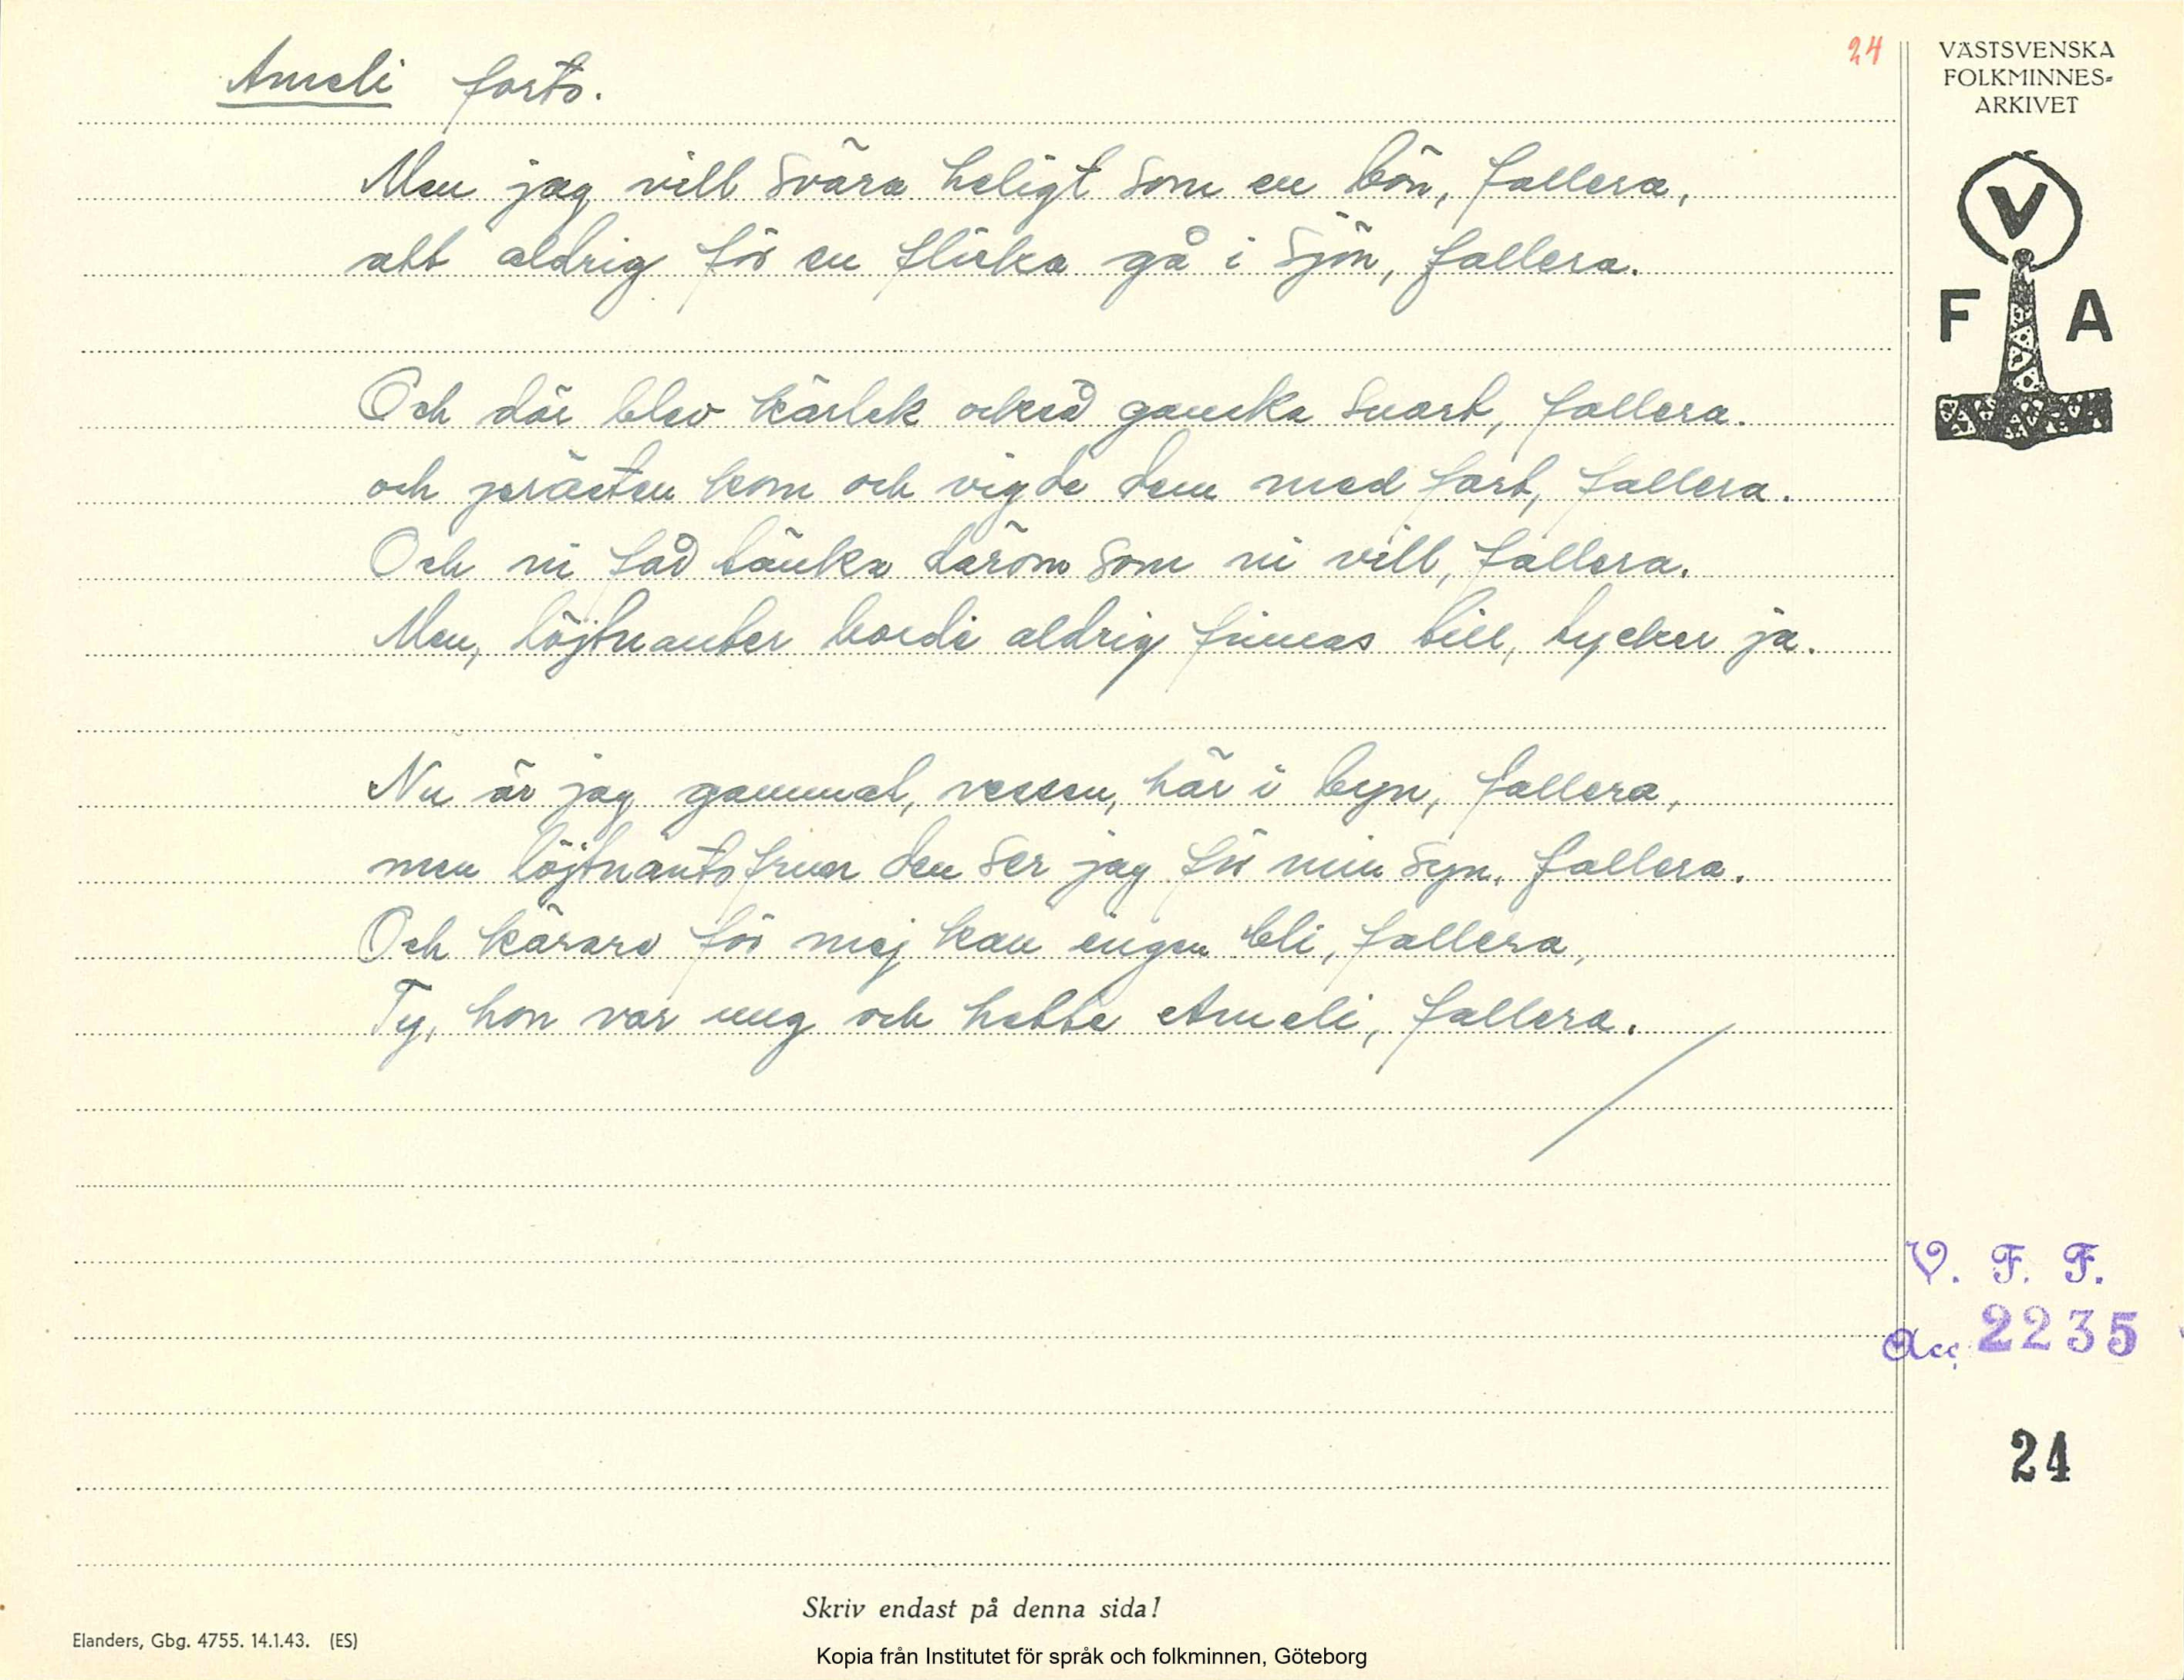 24
Ameli forts.
Men jag vill svära heligt som en bön, fallera,
att aldrig för en flicka gå i sjön, fallera.
Och där blev kärlek också ganska snart, fallera.
och prästen kom och vigde dem med fart, fallera.
Och ni få tänka därom som ni vill, fallera.
Men, löjtnanter borde aldrig finnas till, tycker ja.
Nu är jag gammal, vessen, här i byn, fallera,
men löjtnantsfrun den ser jag för min syn, fallera.
Och kärare för mej kan ingen bli, fallera,
Ty, hon var ung och hette Ameli, fallera.
VÄSTSVENSKA
FOLKMINNES=
ARKIVET
V
F A
V. F. F.
Acc. 2235
24
Skriv endast på denna sida!
Elanders, Gbg. 4755. 14.1.43. (ES)
Kopia från Institutet för språk och folkminnen, Göteborg